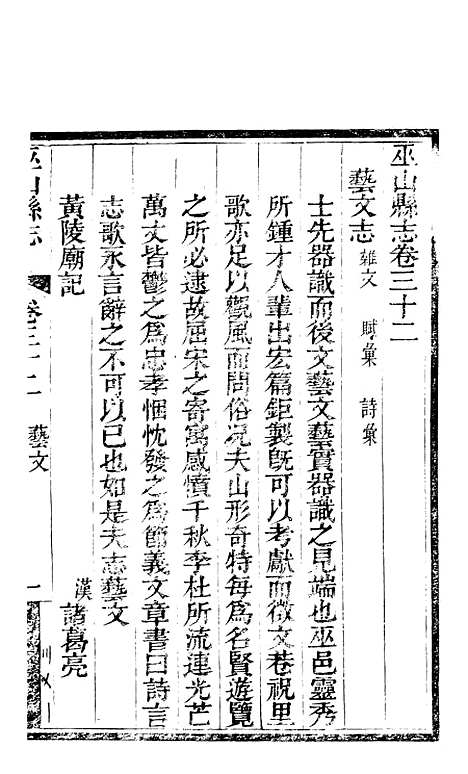 巫山縣志卷三十二
藝文志 雜文 賦彙 詩彙
士先器識而後文藝文藝實器識之見端也巫邑靈秀
所鍾才人輩出宏篇鉅製旣可以考獻而徵文巷祝里
歌亦足以觀風而問俗况夫山形奇特每爲名賢遊覽
之所必逮故屈宋之寄寓感憤千秋李杜所流連光芒
萬丈皆鬱之爲忠孝悃忱發之爲節義文章書曰詩言
志歌永言辭之不可以已也如是夫志藝文
黃陵廟記 漢 諸葛亮
巫山縣志 卷三十二 藝文 一